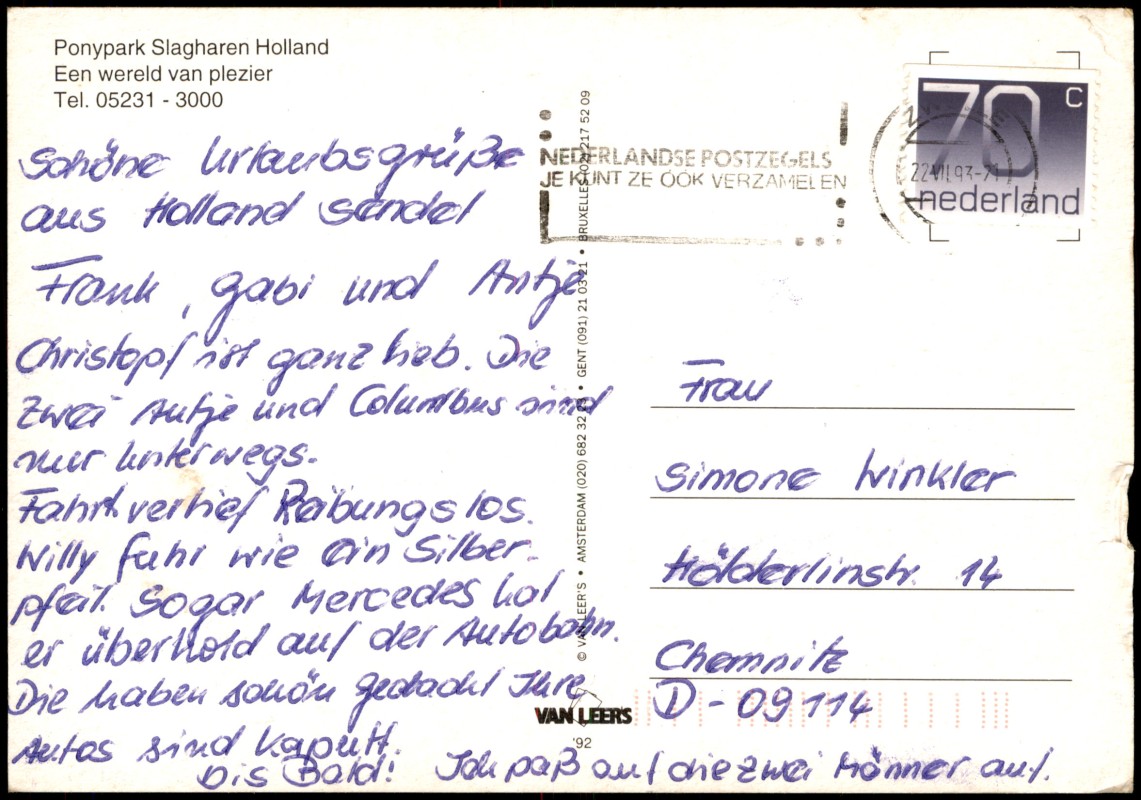 Ponypark Slagharen Holland
Een wereld van plezier
Tel. 05231 - 3000
Schöne Urlaubsgrüße
aus Holland sendet
Frank, Gabi und Antje
Christopf ist ganz lieb. Die
zwei Antje und Columbus sind
nur Unterwegs.
Fahrt verlief Reibungslos.
Willy fuhr wie ein Silber-
pfeil. Sogar Mercedes hat
er überhold auf der Autobahn.
Die haben schön gedacht Ihre
Autos sind Kaputt.
Bis Bald! Ich paß auf die zwei Männer auf.
© VAN LEER'S • AMSTERDAM (020) 682 32 • GENT (091) 21 03 21 • BRUXELLES (02) 217 52 09
VAN LEER'S
'92
NEDERLANDSE POSTZEGELS
JE KUNT ZE ÓÓK VERZAMELEN
22 VII.93-21
70 c
nederland
Frau
Simone Winkler
Hölderlinstr. 14
Chemnitz
D - 09114